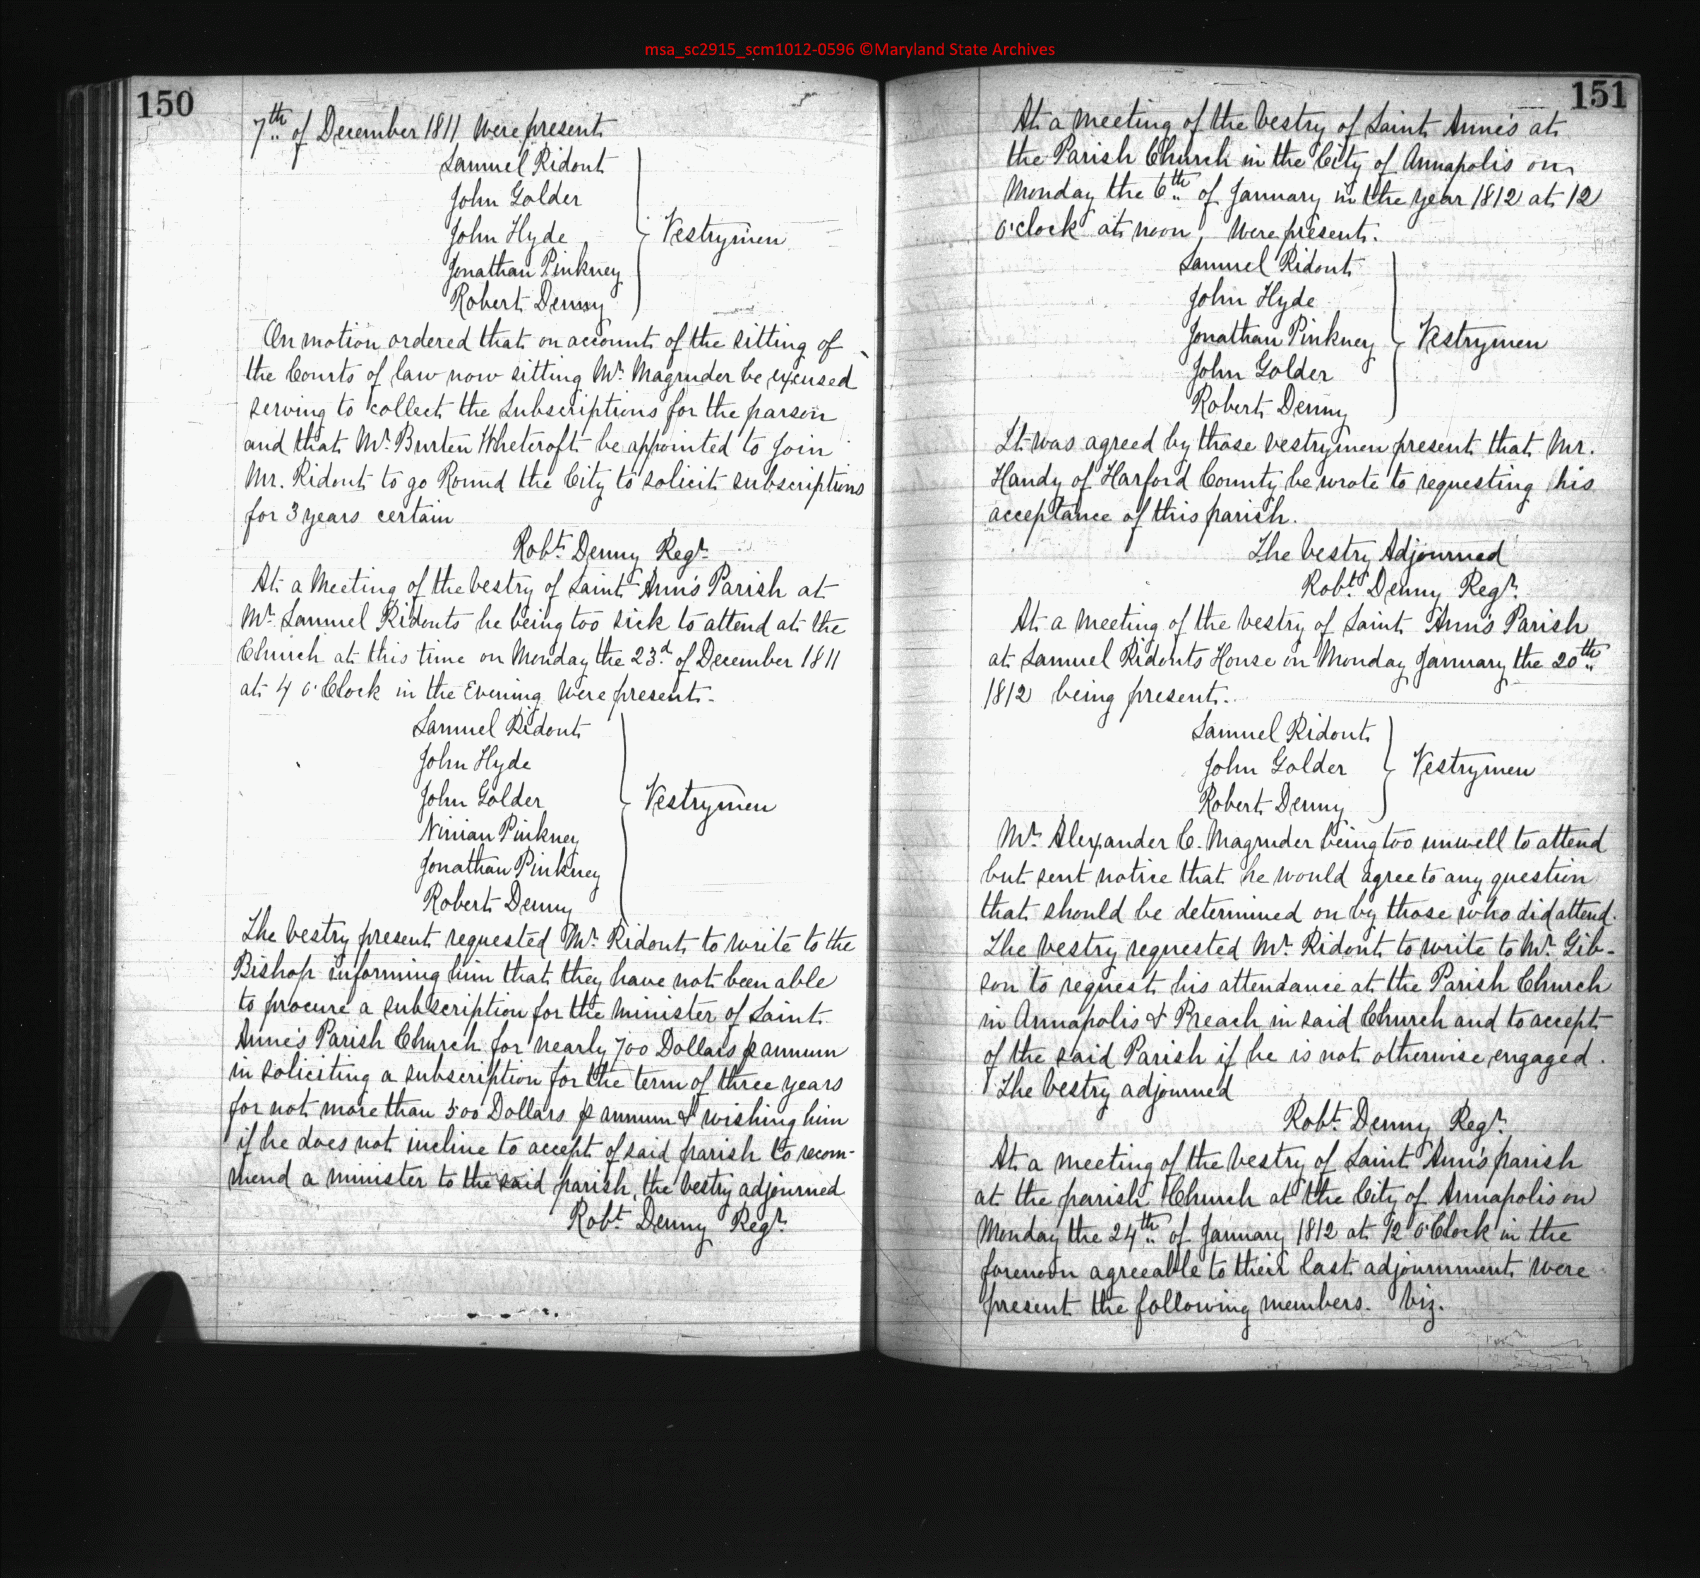 msa_sc2915_scm1012-0596 ©Maryland State Archives
150
7th of December 1811 Were present
Samuel Ridout
John Golder
John Hyde
Jonathan Pinkney
Robert Denny
Vestrymen
On motion ordered that on account of the sitting of
the Courts of law now sitting Mr. Magruder be excused
serving to collect the Subscriptions for the parson
and that Mr. Burten Whetcroft be appointed to Join
Mr. Ridout to go Round the City to solicit subscriptions
for 3 years certain
Robt. Denny Regr.
At a Meeting of the Vestry of Saint Ann's Parish at
Mr. Samuel Ridouts he being too sick to attend at the
Church at this time on Monday the 23d. of December 1811
at 4 o'Clock in the Evening Were present.
Samuel Ridout
John Hyde
John Golder
Ninian Pinkney
Jonathan Pinkney
Robert Denny
Vestrymen
The Vestry present requested Mr. Ridout to write to the
Bishop informing him that they have not been able
to procure a subscription for the minister of Saint
Anne's Parish Church for nearly 700 Dollars p annum
in soliciting a subscription for the term of three years
for not more than 500 Dollars p annum & wishing him
if he does not incline to accept of said parish to recom-
mend a minister to the said parish, the Vestry adjourned
Robt. Denny Regr.
151
At a meeting of the Vestry of Saint Anne's at
the Parish Church in the City of Annapolis on
Monday the 6th of January in the year 1812 at 12
o'clock at noon, Were present.
Samuel Ridout
John Hyde
Jonathan Pinkney
John Golder
Robert Denny
Vestrymen
It was agreed by those vestrymen present that Mr.
Handy of Harford County be wrote to requesting his
acceptance of this parish.
The Vestry Adjourned
Robt. Denny Regr.
At a Meeting of the Vestry of Saint Ann's Parish
at Samuel Ridouts House on Monday January the 20th
1812 being present.
Samuel Ridout
John Golder
Robert Denny
Vestrymen
Mr. Alexander C. Magruder being too unwell to attend
but sent notice that he would agree to any question
that should be determined on by those who did attend.
The Vestry requested Mr. Ridout to write to Mr. Gib-
son to request his attendance at the Parish Church
in Annapolis & Preach in said Church and to accept
of the said Parish if he is not otherwise engaged.
The Vestry adjourned
Robt. Denny Regr.
At a meeting of the Vestry of Saint Ann's parish
at the parish Church at the City of Annapolis on
Monday the 24th of January 1812 at 12 o'Clock in the
forenoon agreeable to their last adjournment were
present the following members. Viz.